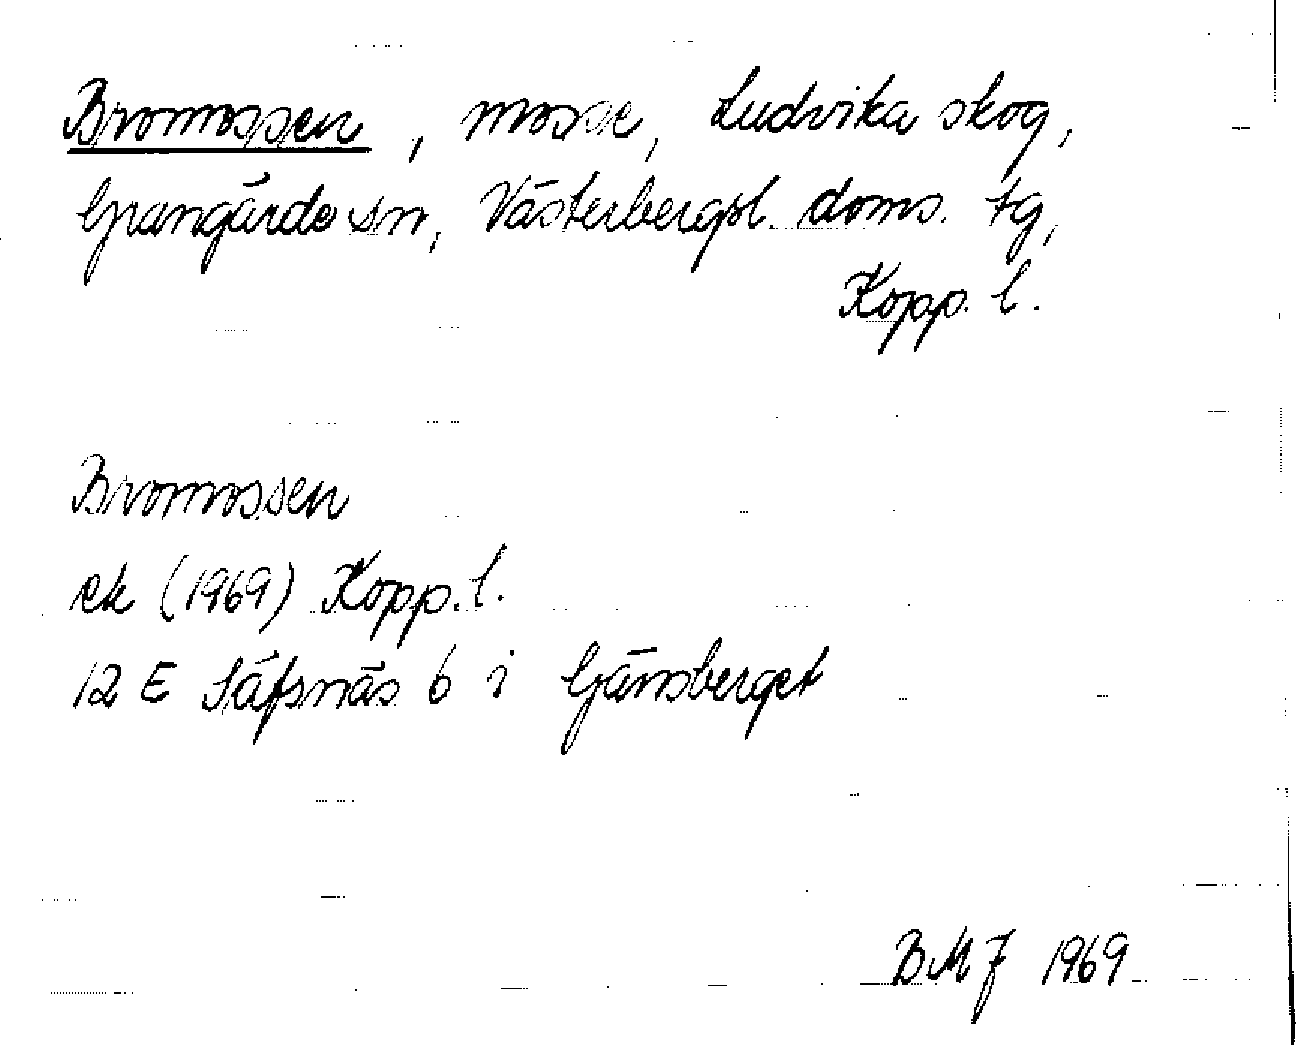 Bromossen, mosse, Ludvika skog,
Grangärde sn, Västerbergsl. doms. tg,
Kopp. l.
Bromossen
ek (1969) Kopp. l.
12 E Säfsnäs 6 i Gänsberget
BMJ 1969